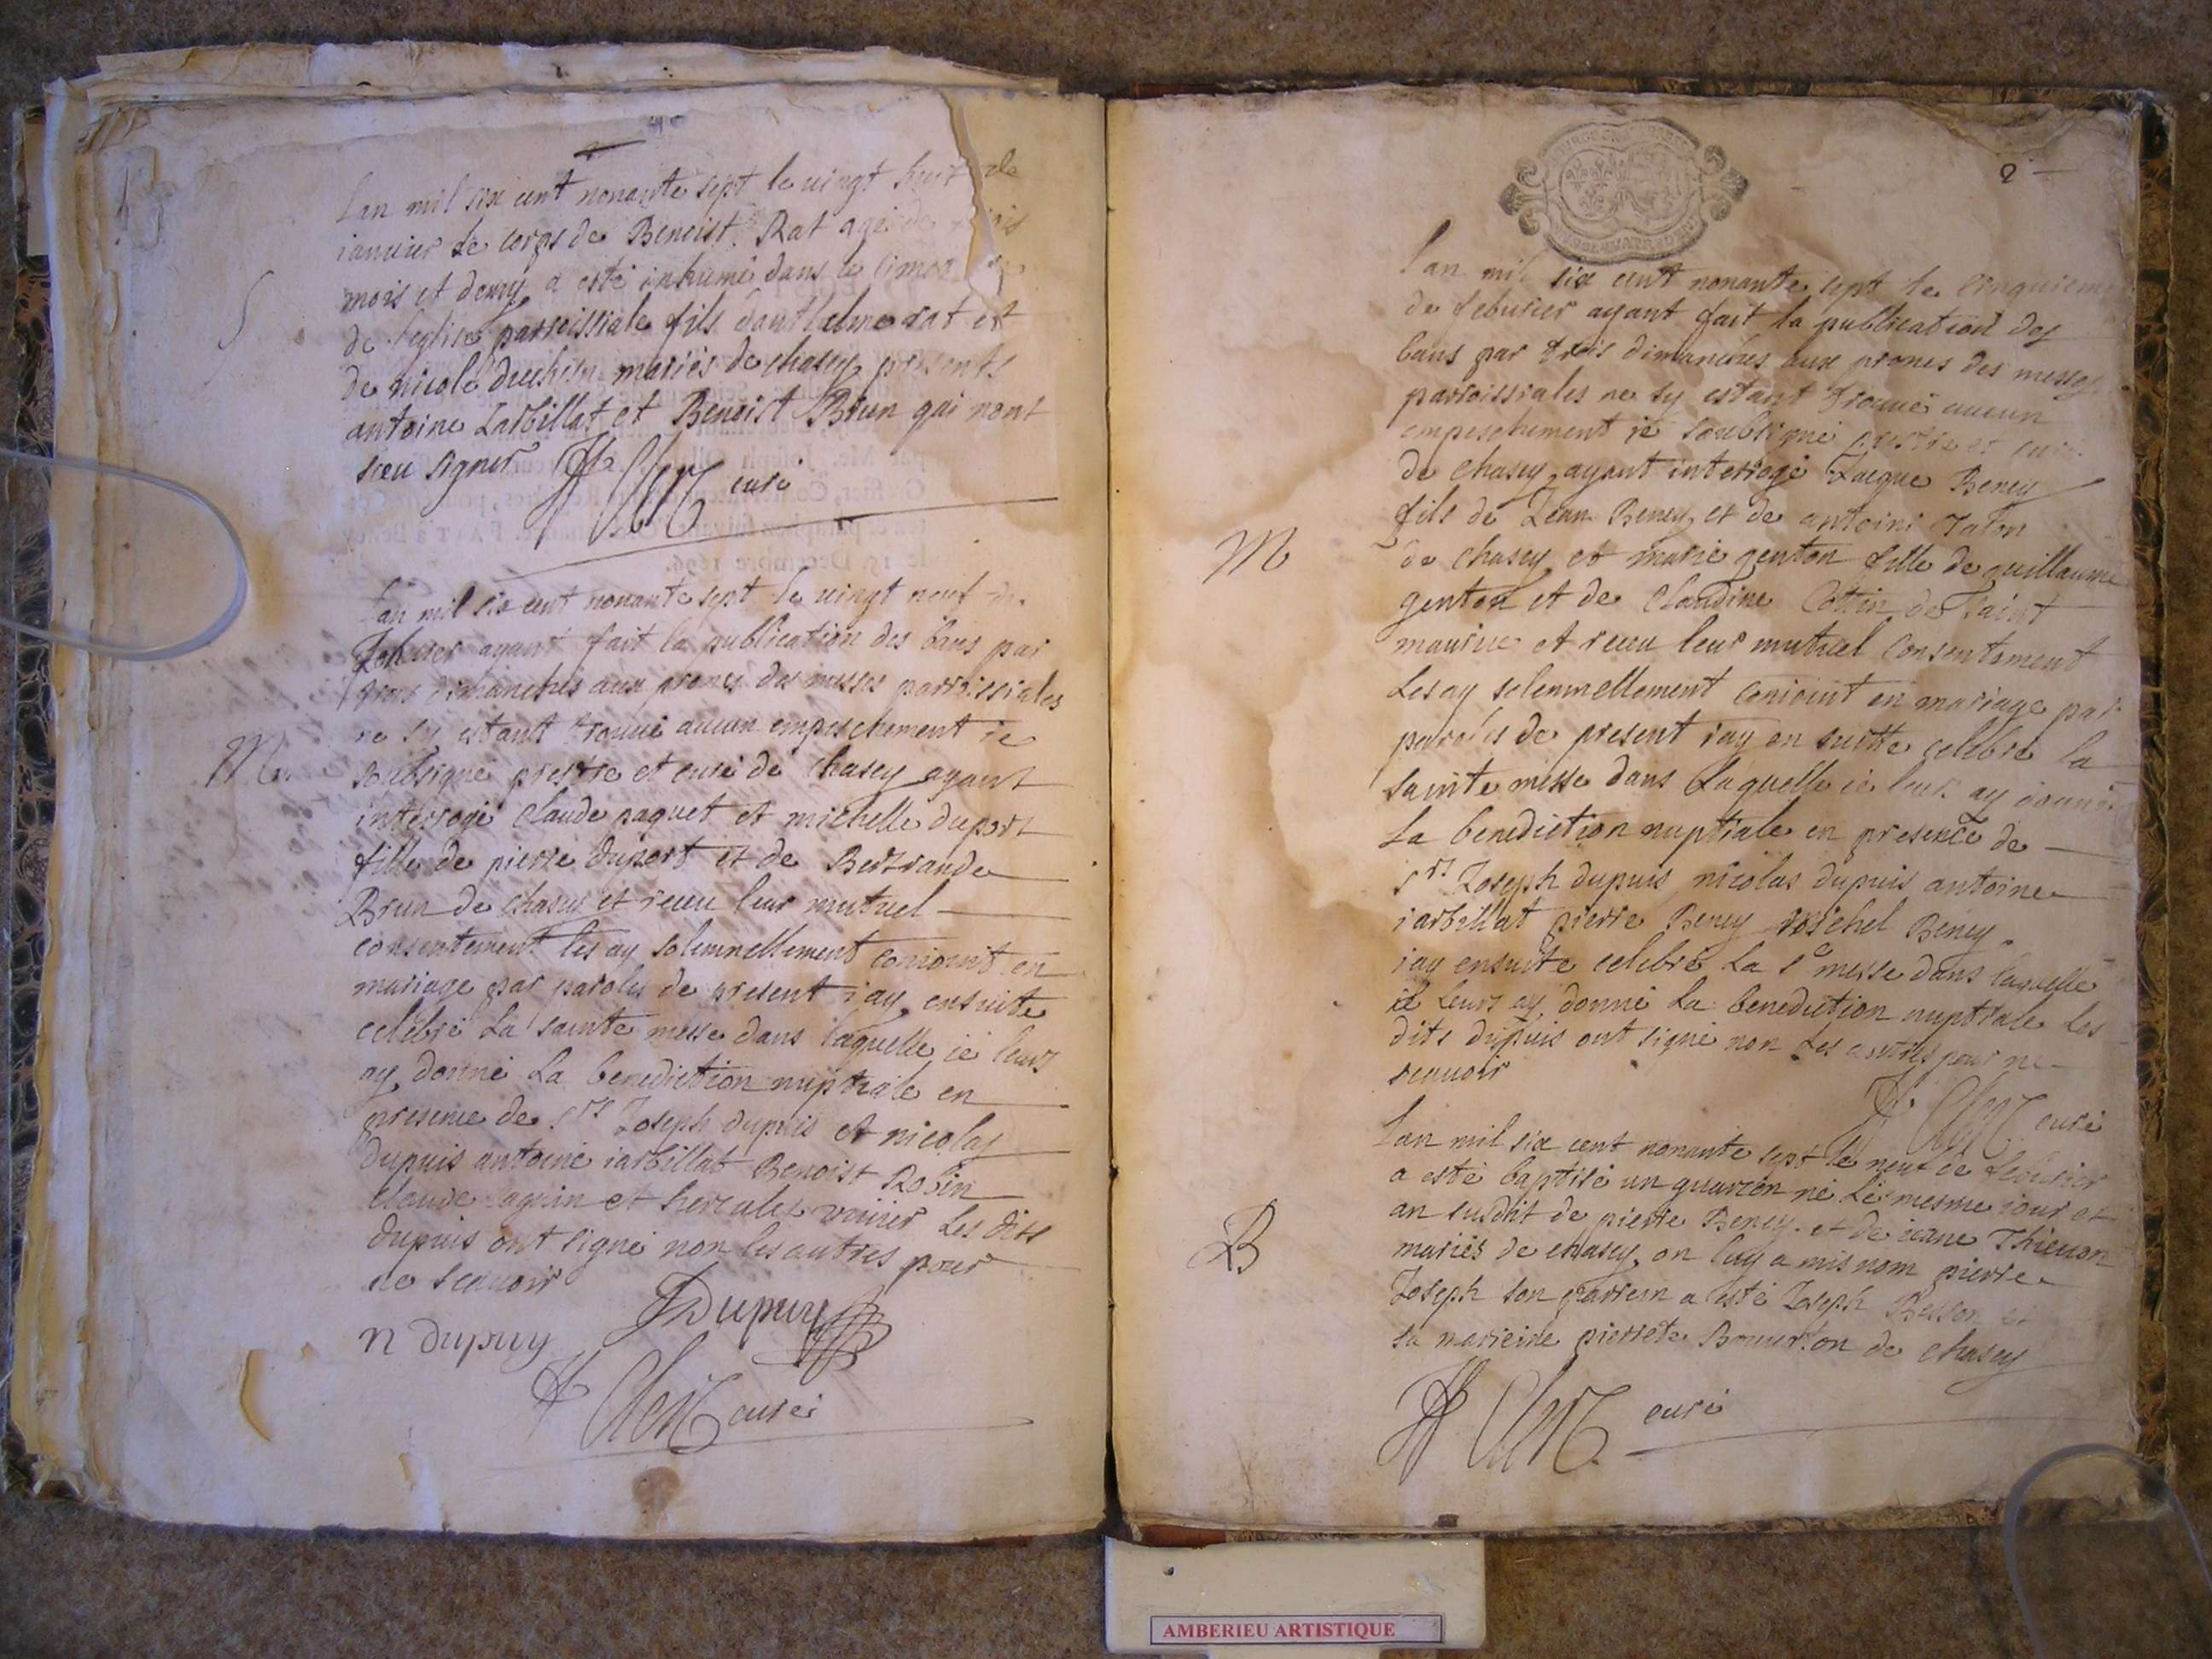 Lan mil six cent nonante sept le vingt huit de
ianvier le corps de Benoist Rat agé de
mois et demy a esté inhumé dans le
de leglise parroissiale fils danthelme rat et
de nicole mariés de chasey presents
antoine Jarbillat et Benoist Brun qui nont
sceu signer Clerc curé
S
Lan mil six cent nonante sept le vingt neuf de
ayant fait la publication des bans par
trois dimanches aux prones des messes parroissiales
ne sy estant trouvé aucun empeschement ie
M
soubsigné prestre et curé de chasey ayant
interrogé claude paquet et michelle duport
fille de pierre duport et de Bertrande
Brun de chasey et receu leur mutuel
consentement les ay solemnellement conioint en
mariage par paroles de present iay ensuite
celebré La sainte messe dans laquelle ié leurs
ay donné La benediction nuptiale en
presence de srs Joseph dupuis et nicolas
dupuis antoine iarbillat Benoist Robin
claude et hercules les dits
dupuis ont signé non les autres pour
ne scavoir
JDupuy
n dupuy
Clerc curé
2
Lan mil six cent nonante sept le cinquieme
de febvrier ayant fait la publication des
bans par trois dimanches aux prones des messes
parroissiales ne sy estant trouvé aucun
empeschement ié soubsigné prestre et curé
de chasey ayant interrogé Jacque Beney
fils de Jean Beney et de antoine
M
de chasey et marie genton fille de guillaume
genton et de claudine Cottin de saint
maurice et receu leur mutuel consentement
Les ay solemnellement conioint en mariage par
paroles de present iay en suitte celebré la
sainte messe dans laquelle ié leur ay donné
La benediction nuptiale en presence de
srs Joseph dupuis nicolas dupuis antoine
iarbillat pierre Beney michel Beney
iay ensuite celebré La ste messe dans laquelle
ié Leurs ay donné La benediction nuptiale les
dits dupuis ont signé non Les autres pour ne
scavoir
Clerc curé
Lan mil six cent nonante sept le neuf de febvrier
a esté baptisé un guarcon né Le mesme iour et
an susdit de pierre Beney et de ieane Thievon
B
mariés de chasey on luy a mis nom pierre
Joseph son parrein a esté Joseph Besson et
sa marreine pierrete de chasey
Clerc curé
AMBERIEU ARTISTIQUE